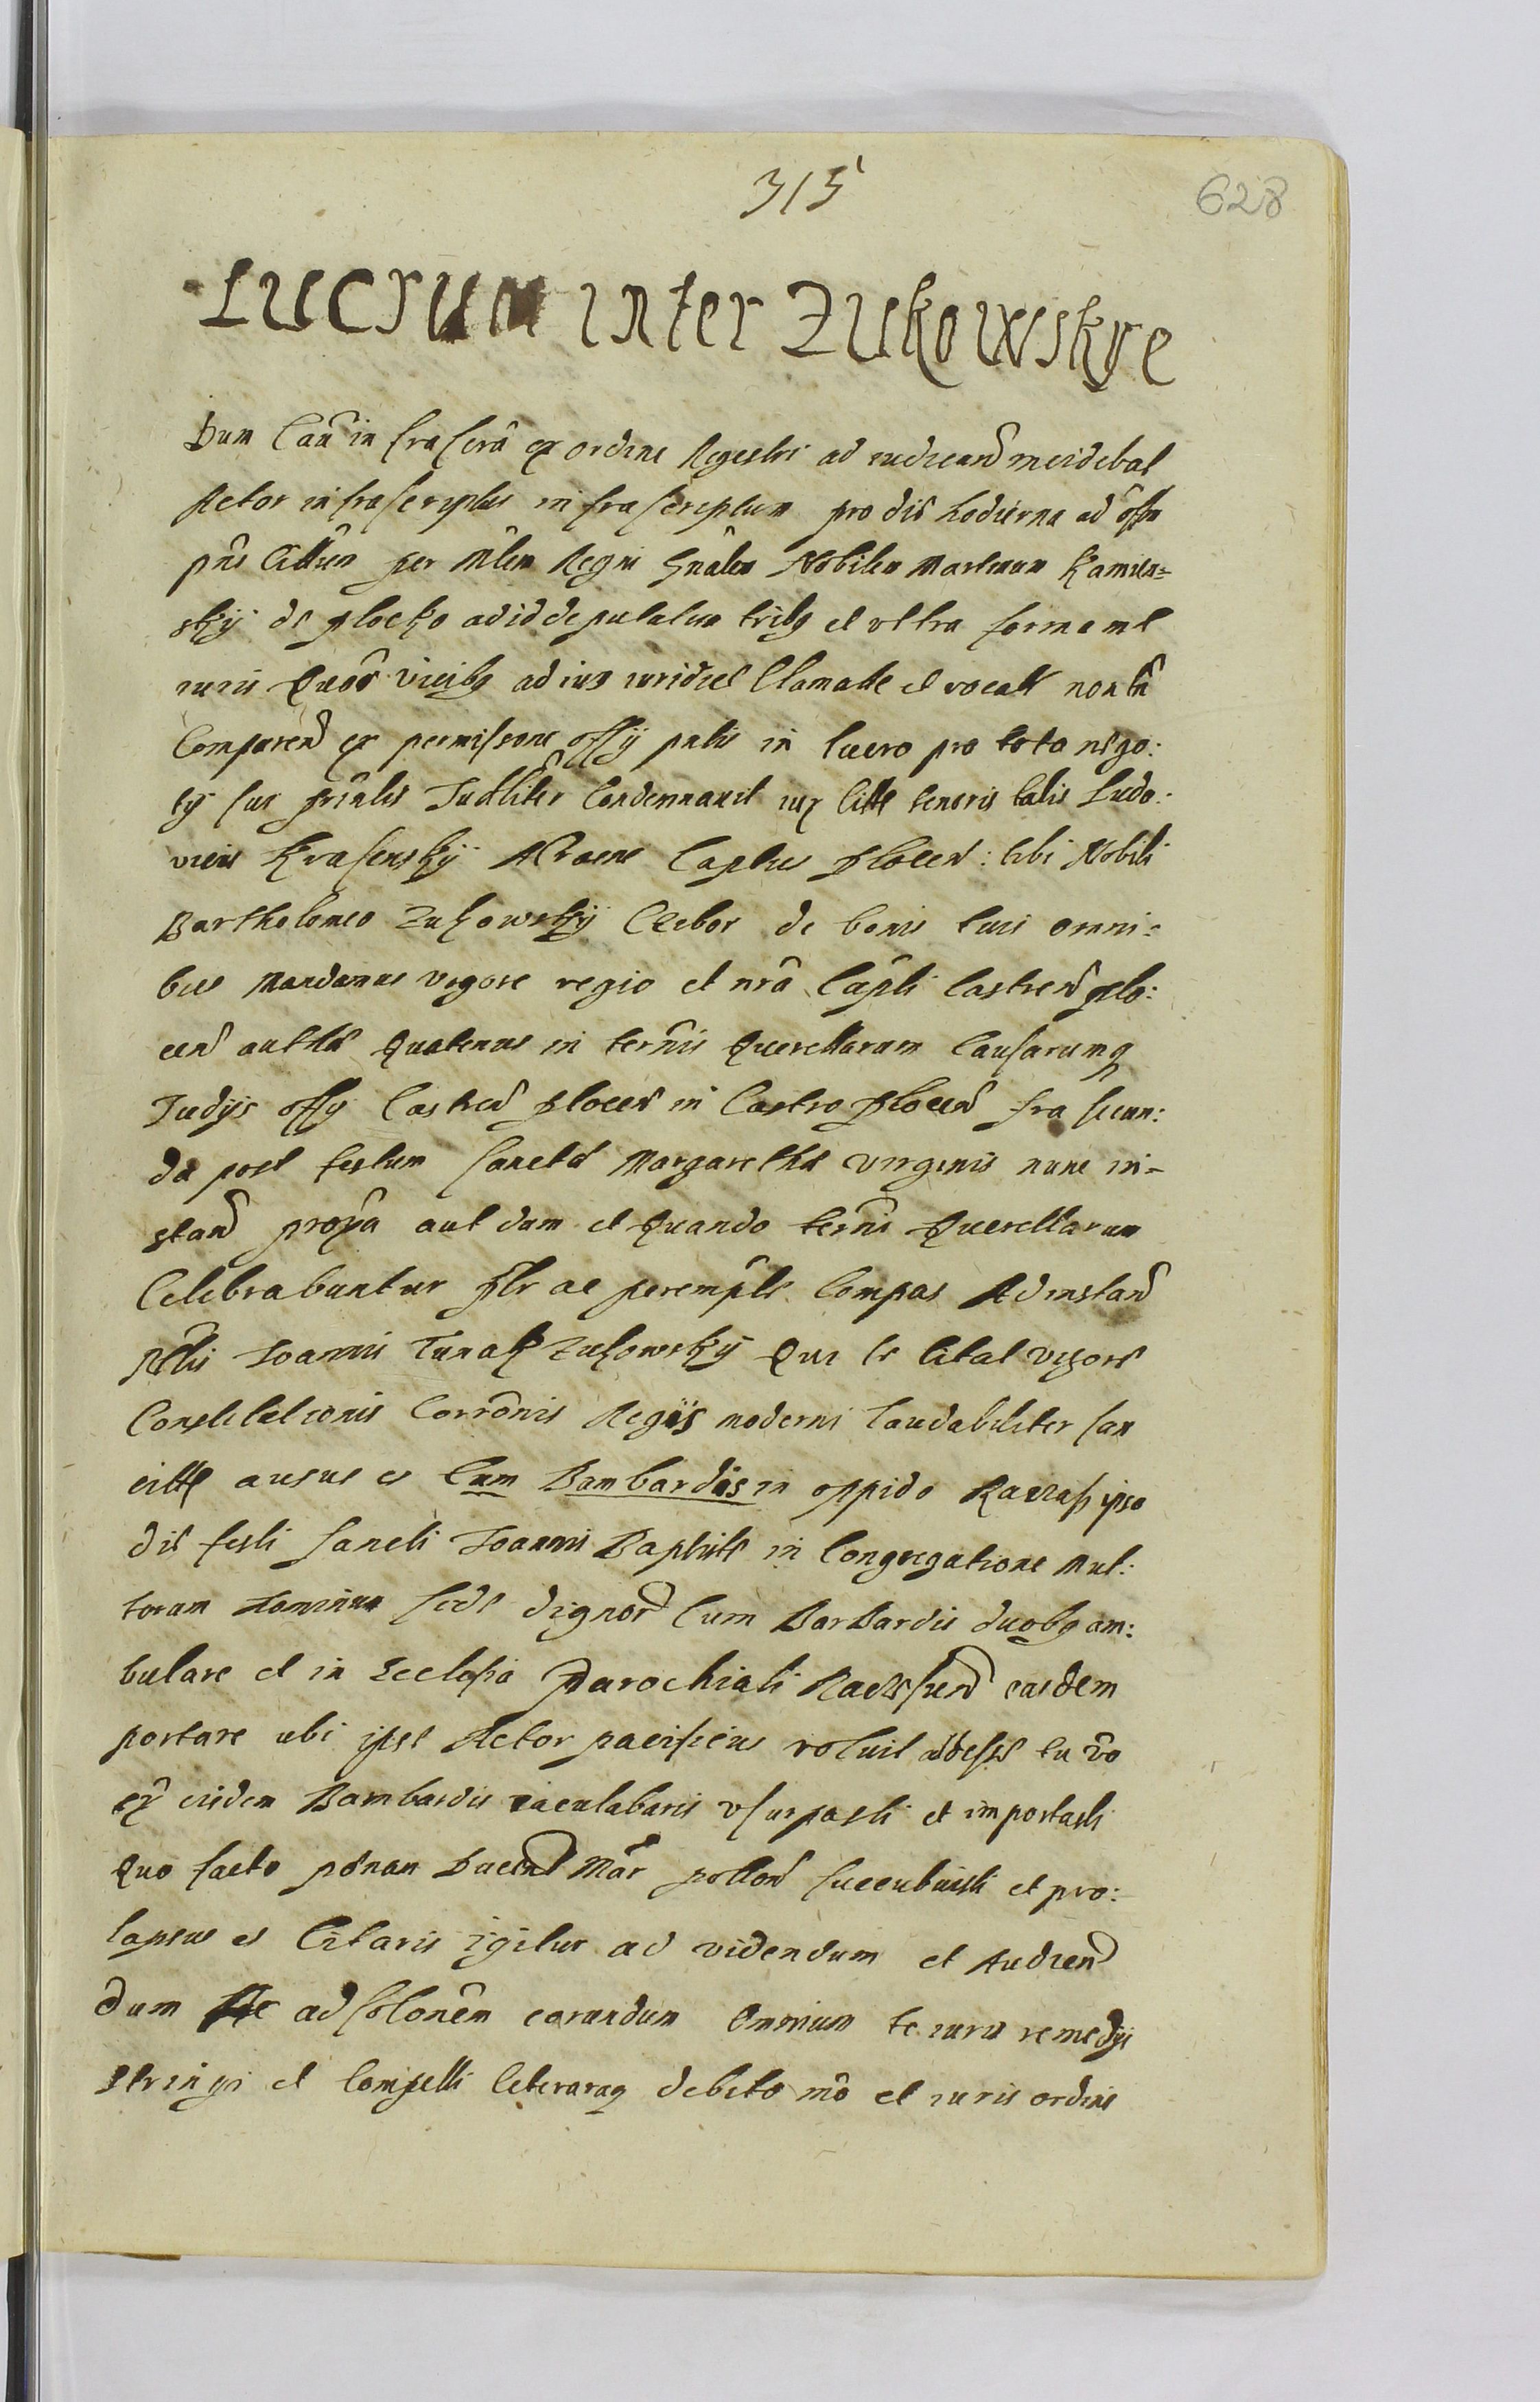 315
628
Lucrum inter Zukowskye
Dum Cau͠ in frascr͠a ex ordine Regestri ad iudicand͠ incidebat
Actor infrascriptus infrascriptum pro die hodierna ad off͠m
pn͠s Citt͠um per M͠lem Regni Gn͠alem Nobilem Martinum Kamien=
skÿ de plocko ad id deputatum tribq et vltra formam
iuris Quos͠ vicibq ad ius iuridice Clamatt et vocatt non t͠n
Comparen͠ ex permissione offÿ pn͠tis in lucro pro toto nego:
tÿ sui prin͠lis Iud͠liter Condemnauit iux Citt͠ tenoris talis Ludo:
vicus Krasinskÿ Capt͠us plocen: tibi Nobili
Bartholomeo Zukowskÿ Celebor de bonis tuis omni:
bus Mandamus vigore regio et nr͠a Cap͠li Castren͠ plo:
cen͠ autt͠e Quatenus in term͠is Querellarum Causarumq
Iudÿs offÿ Castren͠ plocen͠ in Castro plocen͠ fra secun:
da post festum Sanctæ Margarethæ virginis nunc in=
stan͠ prox͠a aut dum et Quando term͠i Querellarum
Celebrabuntur pl͠r ac peremp͠te Compas Ad instan͠
No͠lis Ioannis Tunak Zukowskÿ Qui te Citat vigore
Constitutionis Corro͠nis Regiis moderni laudabiliter san
citt͠ ausus es Cum Bambardis in oppido Raciaß ipso
die festi Sancti Ioannis Baptiste in Congregatione Mul:
torum Hominum fide dignor͠ Cum BarBardis duobq am:
bulare et in Ecclesia Parochiali Raczssen͠ easdem
portare ubi ipse Actor pacificus voluit adesse tu v͠o
ex͠ eisdem Bambardis iaculabaris vsurpasti et importasti
Quo facto pœnam Ducen͠t Mar͠ pollon͠ succubuisti et pro:
lapsus es Citaris igitur ad videndum et Audien͠
dum te ad solon͠em earundum Omnium te iuris remedÿs
stringi et Compelli Ceteraraq debito mo͠ et iuris ordine